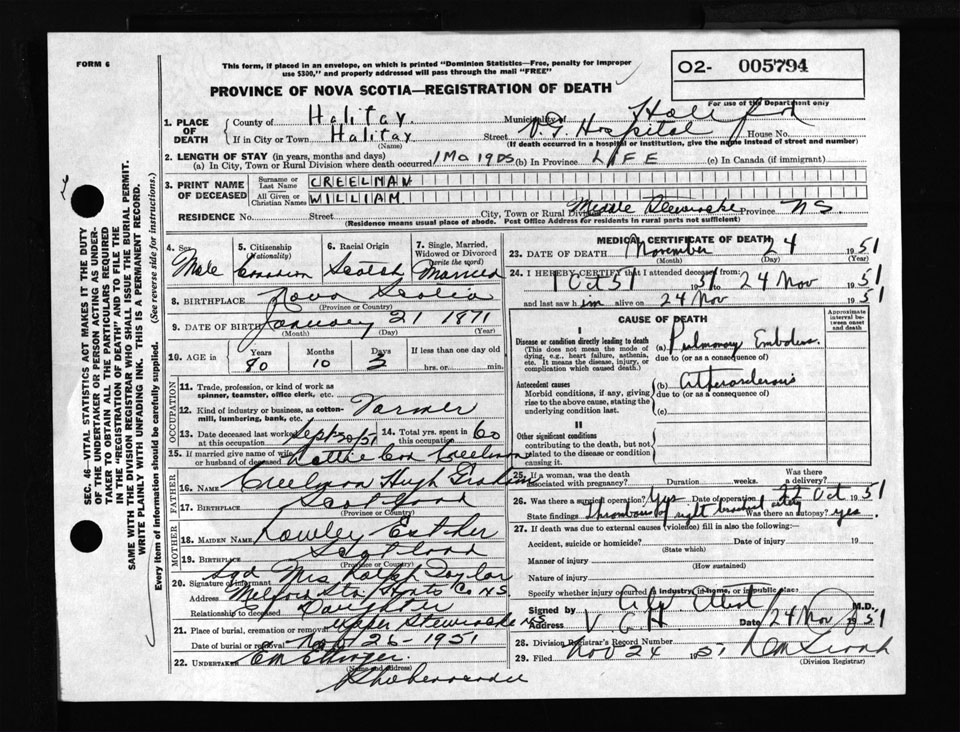 FORM 6
This form, if placed in an envelope, on which is printed "Dominion Statistics—Free, penalty for improper
use $300," and properly addressed will pass through the mail "FREE"
O2- 005794
For use of the Department only
PROVINCE OF NOVA SCOTIA—REGISTRATION OF DEATH
1. PLACE OF DEATH
County of Halifax. Municipality of Halifax
If in City or Town Halifax Street V.G. Hospital House No.
(Name) (If death occurred in a hospital or institution, give the name instead of street and number)
2. LENGTH OF STAY (in years, months and days)
(a) In City, Town or Rural Division where death occurred 1 Mo 19 DS (b) In Province LIFE (c) In Canada (if immigrant)
3. PRINT NAME OF DECEASED
Surname or Last Name CREELMAN
All Given or Christian Names WILLIAM
RESIDENCE No. Street City, Town or Rural Division Middle Stewiacke Province N.S.
(Residence means usual place of abode. Post Office Address for residents in rural parts not sufficient)
4. Sex Male
5. Citizenship (Nationality) Canadian
6. Racial Origin Scotch
7. Single, Married, Widowed or Divorced (write the word) Married
8. BIRTHPLACE Nova Scotia
(Province or Country)
9. DATE OF BIRTH January 21 1871
(Month) (Day) (Year)
10. AGE in Years Months Days If less than one day old
80 10 3 hrs. or min.
OCCUPATION
11. Trade, profession, or kind of work as
spinner, teamster, office clerk, etc.
12. Kind of industry or business, as cotton-
mill, lumbering, bank, etc. Farmer
13. Date deceased last worked at this occupation Sept 20/51 14. Total yrs. spent in this occupation 60
15. If married give name of wife or husband of deceased Creelman
FATHER
16. NAME Creelman Hugh Graham
17. BIRTHPLACE Scotland
(Province or Country)
MOTHER
18. MAIDEN NAME Esther
19. BIRTHPLACE Scotland
(Province or Country)
20. Signature of informant sgd Mrs Ralph Taylor
Address Milford Sta, Hants Co N.S.
Relationship to deceased Daughter
21. Place of burial, cremation or removal Upper Stewiacke NS
Date of burial or removal Nov 26-1951
22. UNDERTAKER
(Name and Address)
Shubenacadie
MEDICAL CERTIFICATE OF DEATH
23. DATE OF DEATH November 24 1951
(Month) (Day) (Year)
24. I HEREBY CERTIFY that I attended deceased from:
1 Oct 51 1951 to 24 Nov 1951
and last saw him alive on 24 Nov 1951
CAUSE OF DEATH
Approximate interval between onset and death
I
Disease or condition directly leading to death
(This does not mean the mode of dying, e.g., heart failure, asthenia, etc. It means the disease, injury, or complication which caused death.)
(a) Pulmonary Embolus.
due to (or as a consequence of)
Antecedent causes
Morbid conditions, if any, giving rise to the above cause, stating the underlying condition last.
(b)
due to (or as a consequence of)
(c)
II
Other significant conditions
contributing to the death, but not related to the disease or condition causing it.
25. If a woman, was the death associated with pregnancy? Duration weeks. Was there a delivery?
26. Was there a surgical operation? Yes Date of operation 22 Oct 1951
State findings Thrombus of right brachial artery Was there an autopsy? yes.
27. If death was due to external causes (violence) fill in also the following:—
Accident, suicide or homicide? Date of injury 19
(State which)
Manner of injury
(How sustained)
Nature of injury
Specify whether injury occurred in industry, in home, or in public place
Signed by M.D.,
Address V G H Date 24 Nov 1951
28. Division Registrar's Record Number
29. Filed Nov 24 1951
(Division Registrar)
SEC. 46—VITAL STATISTICS ACT MAKES IT THE DUTY
OF THE UNDERTAKER OR PERSON ACTING AS UNDER-
TAKER TO OBTAIN ALL THE PARTICULARS REQUIRED
IN THE "REGISTRATION OF DEATH" AND TO FILE THE
SAME WITH THE DIVISION REGISTRAR WHO SHALL ISSUE THE BURIAL PERMIT.
WRITE PLAINLY WITH UNFADING INK. THIS IS A PERMANENT RECORD.
Every item of information should be carefully supplied. (See reverse side for instructions.)